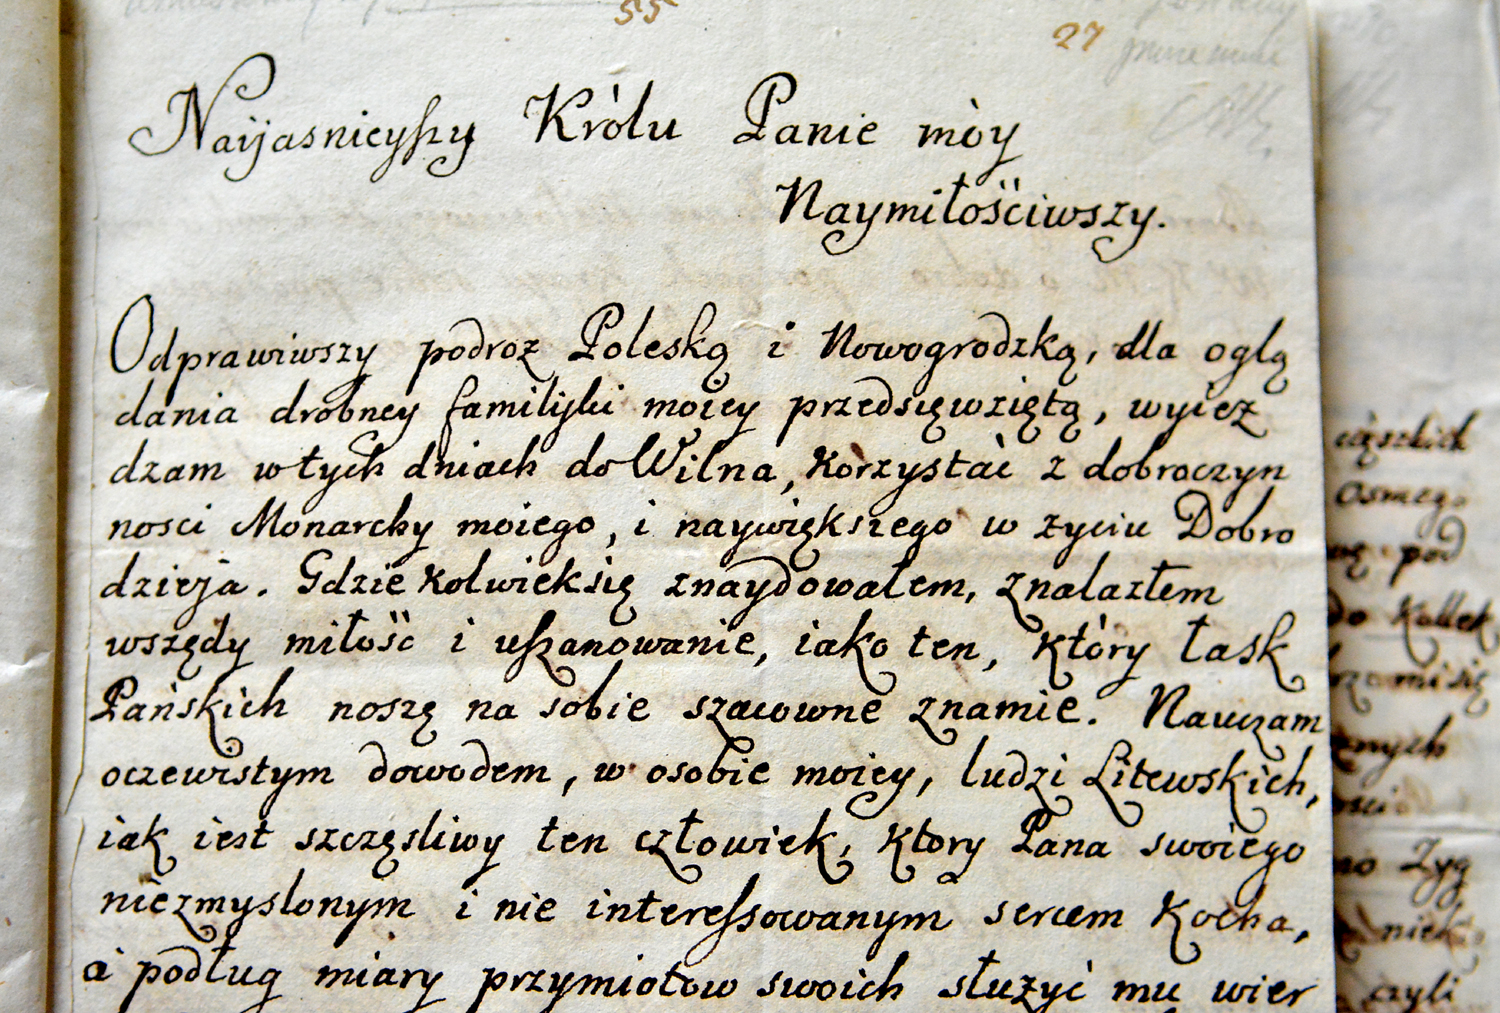 55
27
Naijasnieyszy Królu Panie móy
Naymiłościwszy.
Odprawiwszy podroz Poleską i Nowogrodzką, dla oglą
dania drobney familijki moiey przedsięwziętą, wyież
dzam w tych dniach do Wilna, korzystać z dobroczyn
nosci Monarchy moiego, i naywiększego w zyciu Dobro
dzieja. Gdzie kolwiek się znaydowałem, znalazłem
wszędy miłość i uszanowanie, iako ten, który łask
Pańskich noszę na sobie szacowne znamie. Nauczam
oczewistym dowodem, w osobie moiey, ludzi Litewskich,
iak iest szczęsliwy ten człowiek, ktory Pana swoiego
niezmyslonym i nie interessowanym sercem kocha,
a podług miary przymiotow swoich służyć mu wier
Osmego
pod
do
się
znych
Zyg
czyli